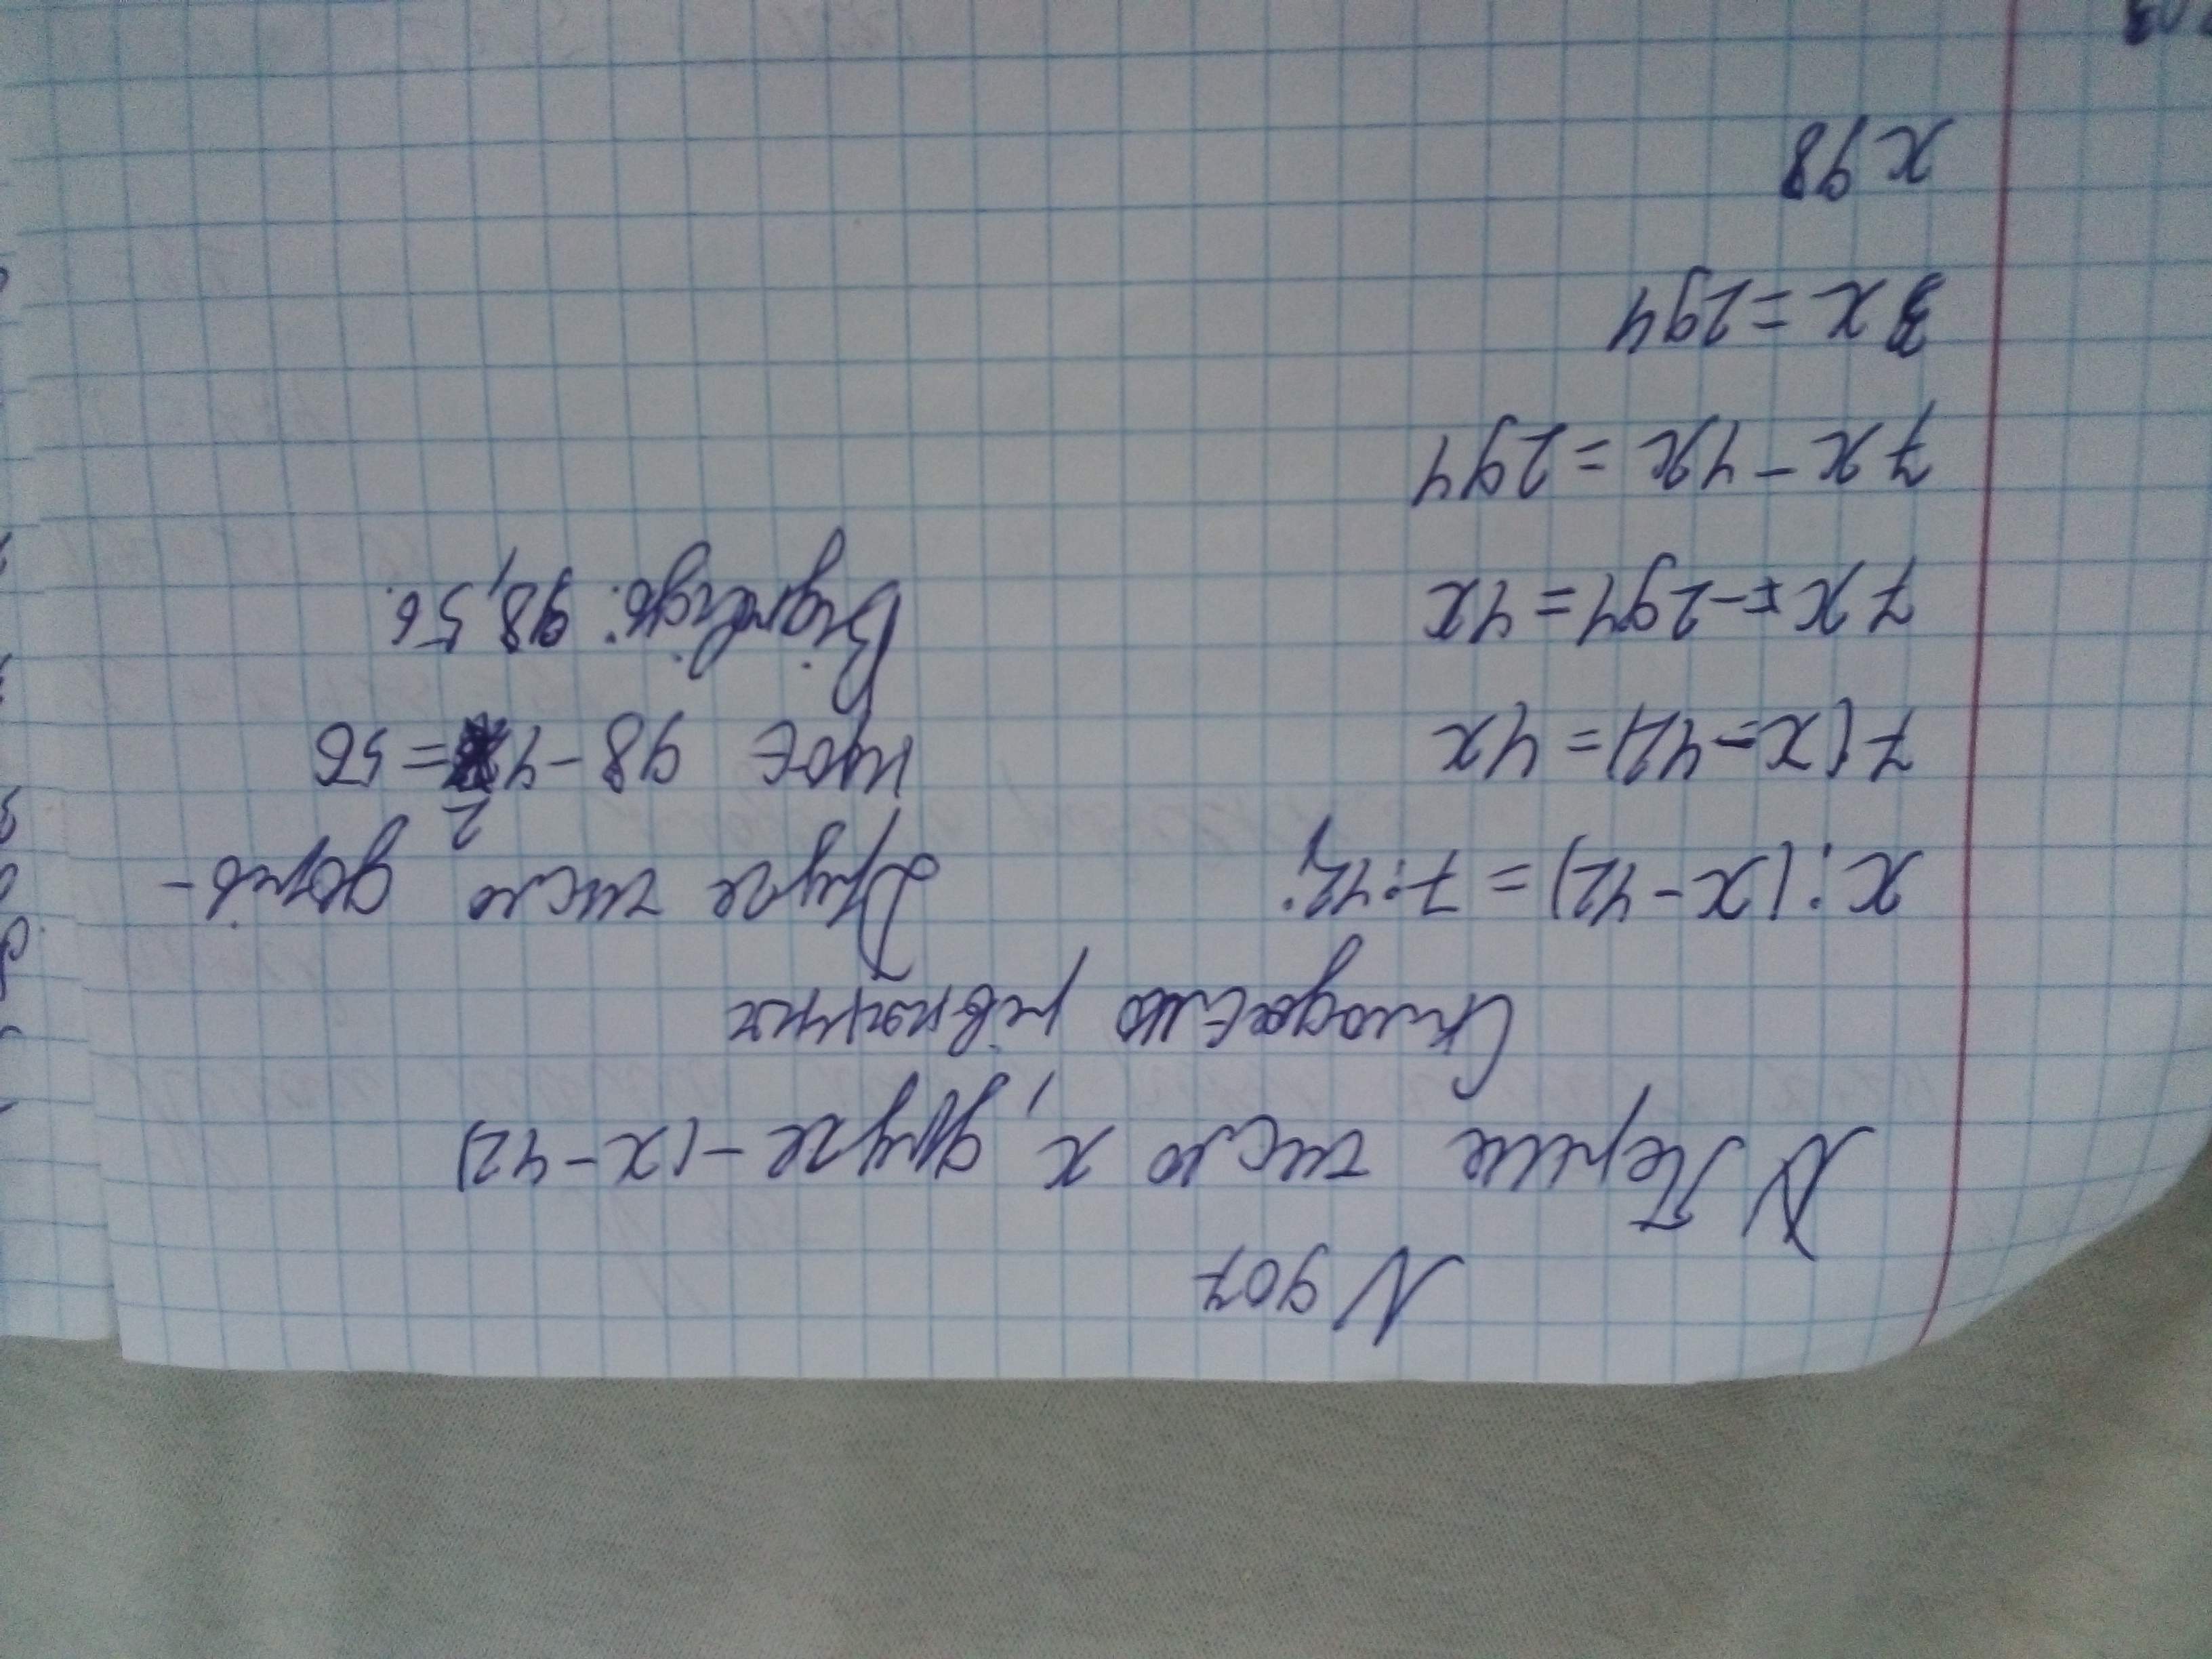 N 907
Перше число x, друге -(x-42)
Складаємо рівняння
x:(x-42)=7:4;
7(x-42)=4x
7x=-294=4x
7x-4x=294
3x=294
x98
Друге число дорів-
нює 98-42=56
Відповідь: 98,56.